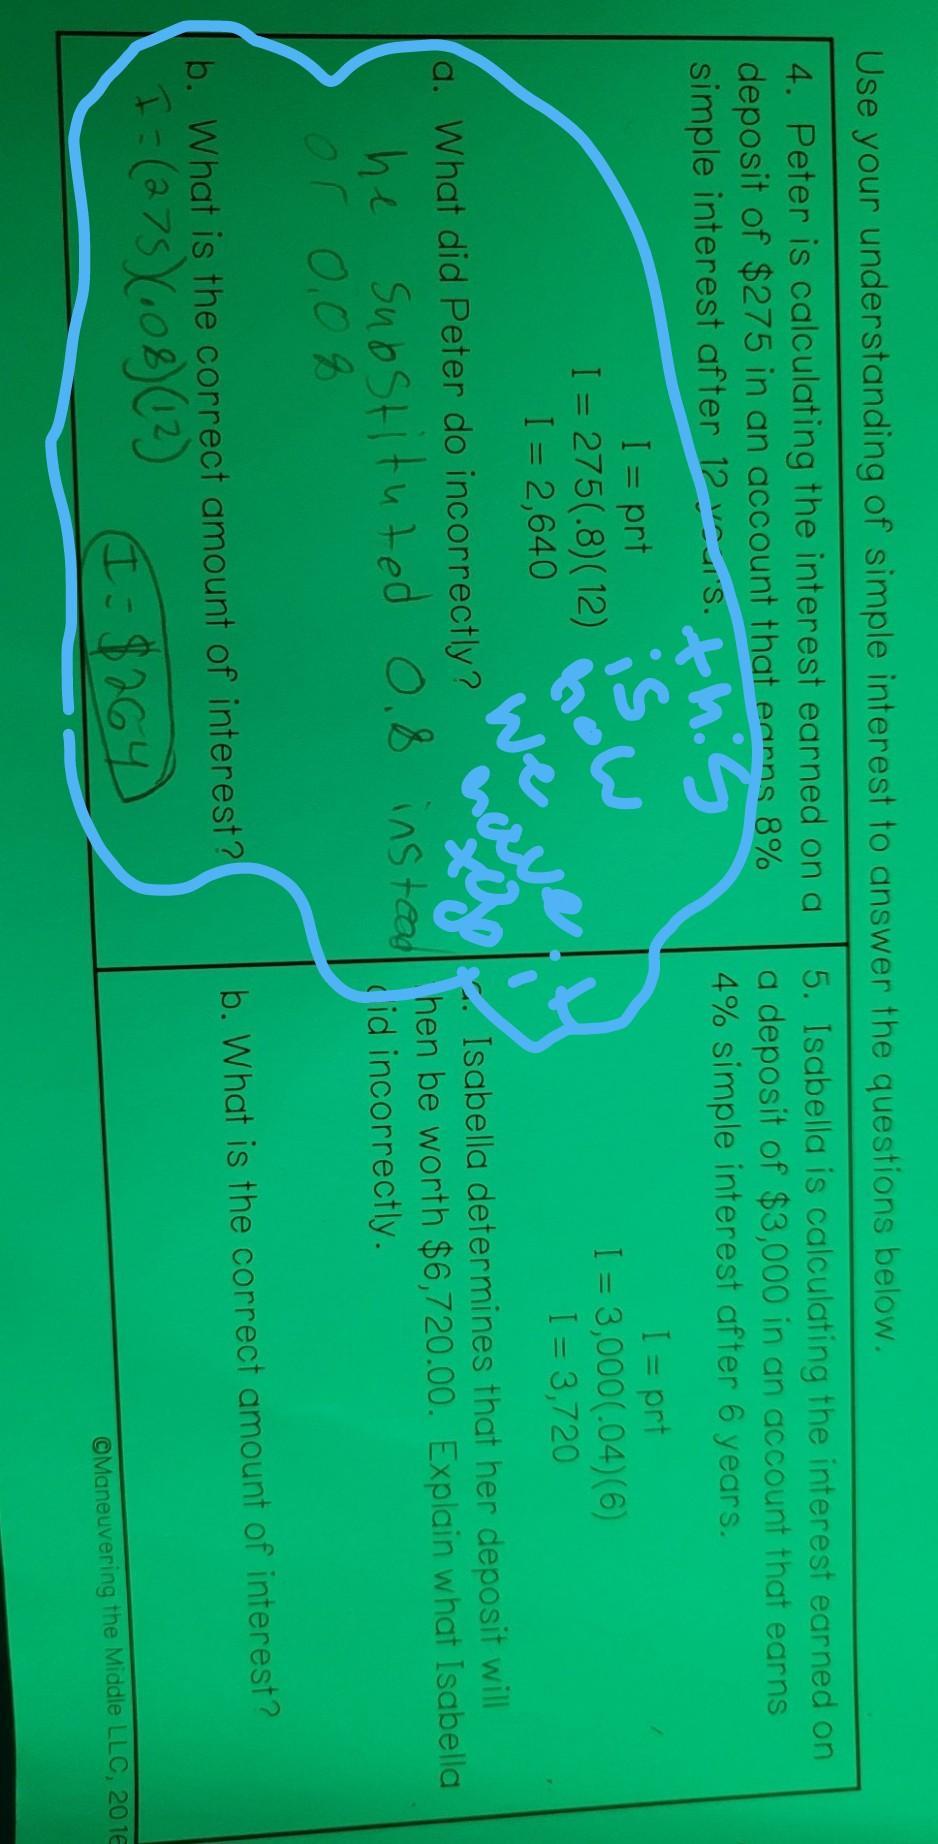 Use your understanding of simple interest to answer the questions below.
4. Peter is calculating the interest earned on a
deposit of $275 in an account that earns 8%
simple interest after 12 years.
I = prt
I = 275(.8)(12)
I = 2,640
this
is
how
we
have it
a. What did Peter do incorrectly?
he substituted 0.8 instead
of 0.08
b. What is the correct amount of interest?
I = (275)(.08)(12)
I = $264
5. Isabella is calculating the interest earned on
a deposit of $3,000 in an account that earns
4% simple interest after 6 years.
I = prt
I = 3,000(.04)(6)
I = 3,720
Isabella determines that her deposit will
then be worth $6,720.00. Explain what Isabella
did incorrectly.
b. What is the correct amount of interest?
©Maneuvering the Middle LLC, 2016